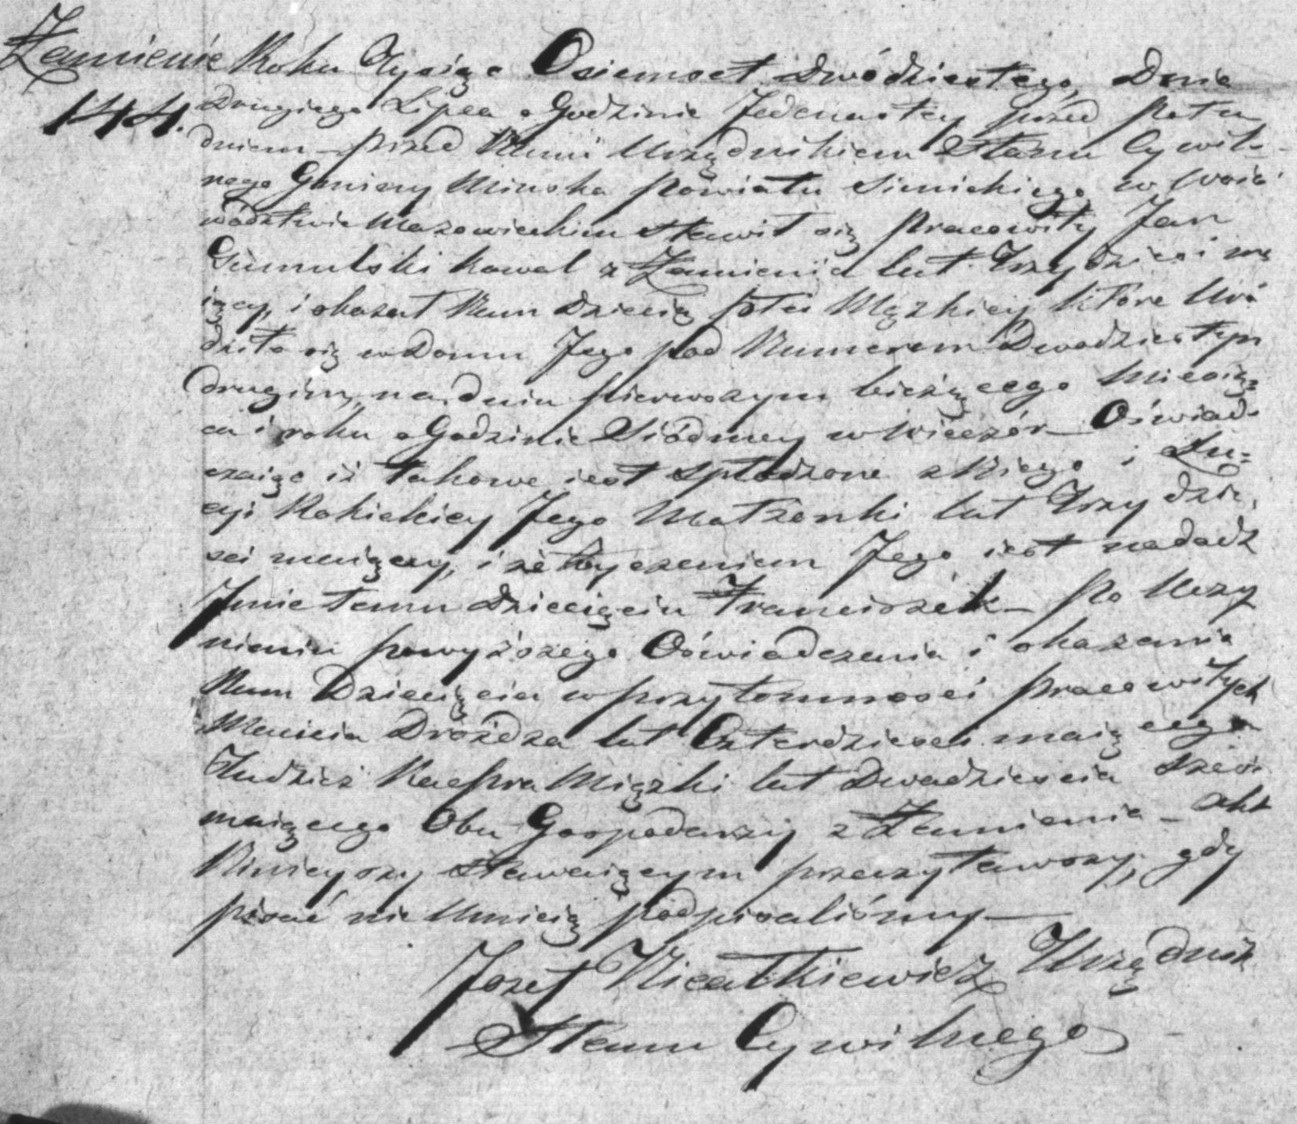 Żamienie Roku Tysiąc Osiemset Dwódziestego, Dnia
144. Drugiego Lipca o Godzinie Jedenastey przed Połu
dniem przed Nami Urzędnikiem Stanu Cywil-
nego Gminy Minska Powiatu Sienickiego w Woie
wództwie Mazowieckim stawił się Pracowity Jan
Gumulski kowal z Żamienia lat Trzydzieści ma
iący, i okazał Nam Dziecię płci Męzkiey, które Uro
dziło się w Domu Jego pod Numerem Dwadziestym
drugim, na dniu pierwszym bieżącego Miesią=
ca i roku o Godzinie Siódmey w Wieczór – Oświad
czaiąc iż takowe iest spłodzone z Niego i Łu=
cyi Rokickiey Jego Małżonki lat Trzydzie,
sci maiącey, i że życzeniem Jego iest nadadz
Jmie temu Dziecięciu Franciszek – Po Uczy
nieniu powyższego Oświadczenia i okazania
Nam Dziecięcia w przytomnosci pracowitych
Macieia Dróżdza lat Czterdziesci maiącego
Tudzież Kacpra Miązki lat Dwadziescia sześć
maiącego Obu Gospodarzy z Żamienia – Akt
Ninieyszy stawaiącym przeczytawszy, gdy
pisać nie Umieią podpisaliśmy —
Jozef Kwiatkiewicz Urzędnik
Stanu Cywilnego